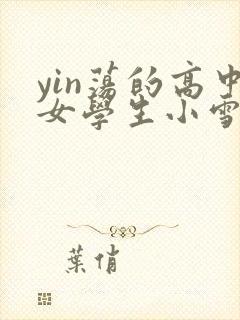 yin蕩的高中
女學生小雪
葉俏